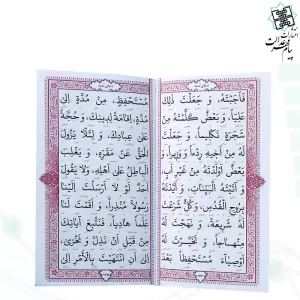 انتشارات
فَاَجَبْتَهُ، وَ جَعَلْتَ ذٰلِكَ
عَلِيّاً، وَ بَعْضٌ كَلَّمْتَهُ مِنْ
شَجَرَةٍ تَكْليماً، وَ جَعَلْتَ
لَهُ مِنْ اَخيهِ رِدْءاً وَ وَزيراً، وَ
بَعْضٌ اَوْلَدْتَهُ مِنْ غَيْرِ اَبٍ،
وَ آتَيْتَهُ الْبَيِّناتِ، وَ اَيَّدْتَهُ
بِرُوحِ الْقُدُسِ، وَ كُلٌّ شَرَعْتَ
لَهُ شَريعَةً، وَ نَهَجْتَ لَهُ
مِنْهاجاً، وَ تَخَيَّرْتَ لَهُ
اَوْصِياءَ، مُسْتَحْفِظاً بَعْدَ
مُسْتَحْفِظٍ، مِنْ مُدَّةٍ اِلىٰ
مُدَّةٍ، اِقامَةً لِدينِكَ، وَ حُجَّةً
عَلىٰ عِبادِكَ، وَ لِئَلّا يَزُولَ
الْحَقُّ عَنْ مَقَرِّهِ، وَ يَغْلِبَ
الْباطِلُ عَلىٰ اَهْلِهِ، وَلا يَقُولَ
اَحَدٌ لَوْ لا اَرْسَلْتَ اِلَيْنا
رَسُولاً مُنْذِراً، وَ اَقَمْتَ لَنا
عَلَماً هادِياً، فَنَتَّبِعَ آياتِكَ
مِنْ قَبْلِ اَنْ نَذِلَّ وَ نَخْزىٰ،
اِلىٰ اَنِ انْتَهَيْتَ بِالْاَمْرِ اِلىٰ